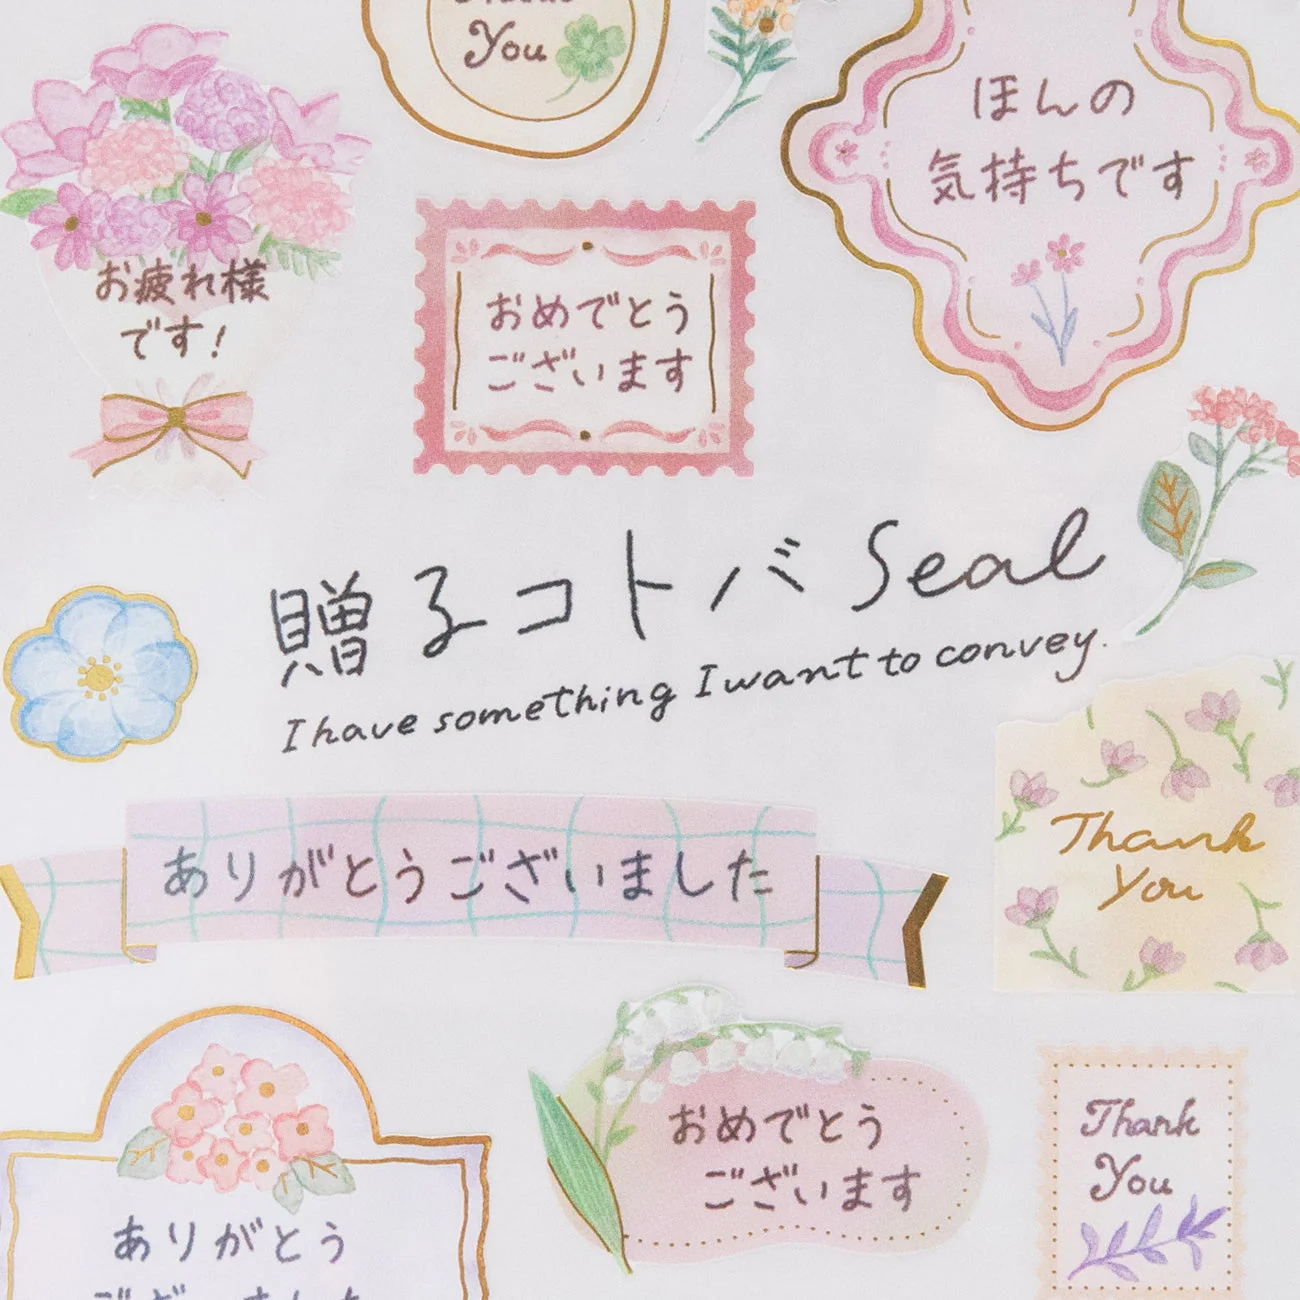 You
ほんの
気持ちです
お疲れ様
です!
おめでとう
ございます
贈るコトバ Seal
I have something I want to convey.
ありがとうございました
Thank
You
おめでとう
ございます
Thank
You
ありがとう